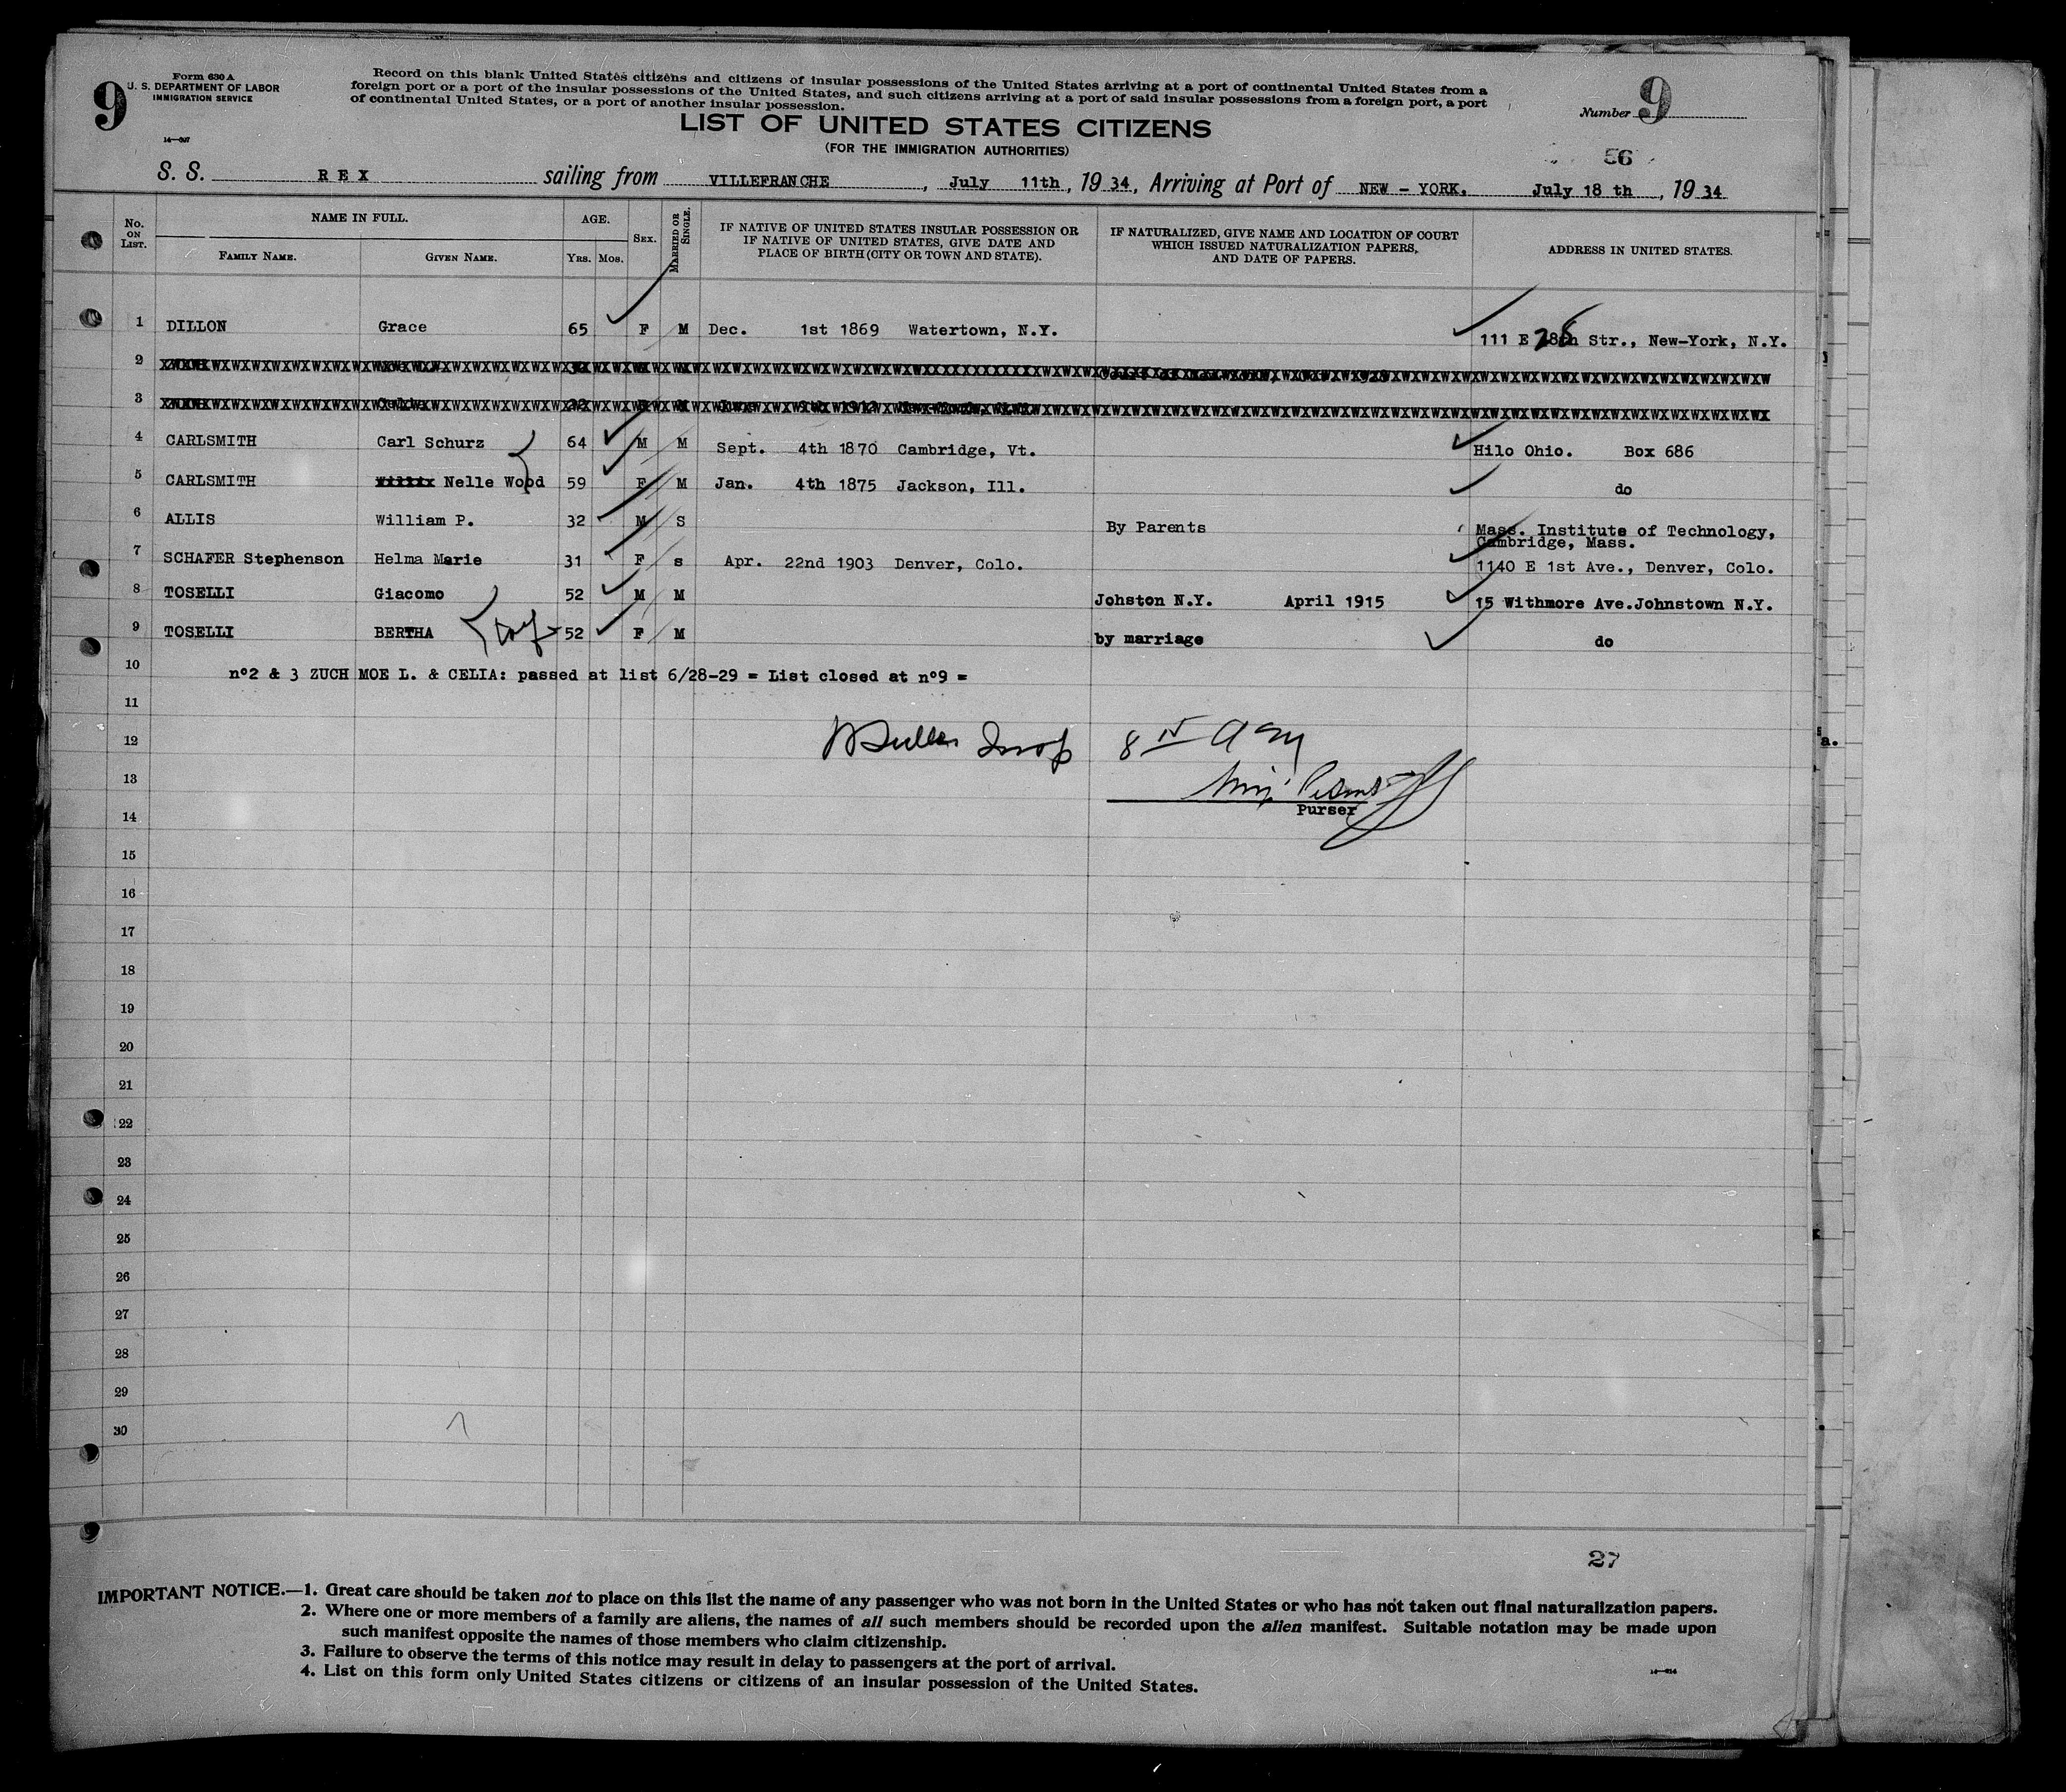 9
Form 630 A
U. S. DEPARTMENT OF LABOR
IMMIGRATION SERVICE
Record on this blank United States citizens and citizens of insular possessions of the United States arriving at a port of continental United States from a
foreign port or a port of the insular possessions of the United States, and such citizens arriving at a port of said insular possessions from a foreign port, a port
of continental United States, or a port of another insular possession.
Number 9
LIST OF UNITED STATES CITIZENS
(FOR THE IMMIGRATION AUTHORITIES)
56
S. S. REX sailing from VILLEFRANCHE, July 11th, 1934, Arriving at Port of NEW - YORK. July 18 th, 1934
No. ON LIST.
NAME IN FULL.
FAMILY NAME.
GIVEN NAME.
AGE.
YRS. MOS.
SEX.
MARRIED OR SINGLE.
IF NATIVE OF UNITED STATES INSULAR POSSESSION OR
IF NATIVE OF UNITED STATES, GIVE DATE AND
PLACE OF BIRTH (CITY OR TOWN AND STATE).
IF NATURALIZED, GIVE NAME AND LOCATION OF COURT
WHICH ISSUED NATURALIZATION PAPERS,
AND DATE OF PAPERS.
ADDRESS IN UNITED STATES.
1 DILLON Grace 65 F M Dec. 1st 1869 Watertown, N.Y. 111 E 28th Str., New-York, N.Y.
2
3
4 CARLSMITH Carl Schurz 64 M M Sept. 4th 1870 Cambridge, Vt. Hilo Ohio. Box 686
5 CARLSMITH Nelle Wood 59 F M Jan. 4th 1875 Jackson, Ill. do
6 ALLIS William P. 32 M S By Parents Mass. Institute of Technology,
Cambridge, Mass.
7 SCHAFER Stephenson Helma Marie 31 F s Apr. 22nd 1903 Denver, Colo. 1140 E 1st Ave., Denver, Colo.
8 TOSELLI Giacomo 52 M M Johston N.Y. April 1915 15 Withmore Ave.Johnstown N.Y.
9 TOSELLI BERTHA 52 F M by marriage do
10 nº2 & 3 ZUCH MOE L. & CELIA: passed at list 6/28-29 = List closed at nº9 =
11
12
13
Purser
14
15
16
17
18
19
20
21
22
23
24
25
26
27
28
29
30
27
IMPORTANT NOTICE.—1. Great care should be taken not to place on this list the name of any passenger who was not born in the United States or who has not taken out final naturalization papers.
2. Where one or more members of a family are aliens, the names of all such members should be recorded upon the alien manifest. Suitable notation may be made upon
such manifest opposite the names of those members who claim citizenship.
3. Failure to observe the terms of this notice may result in delay to passengers at the port of arrival.
4. List on this form only United States citizens or citizens of an insular possession of the United States.